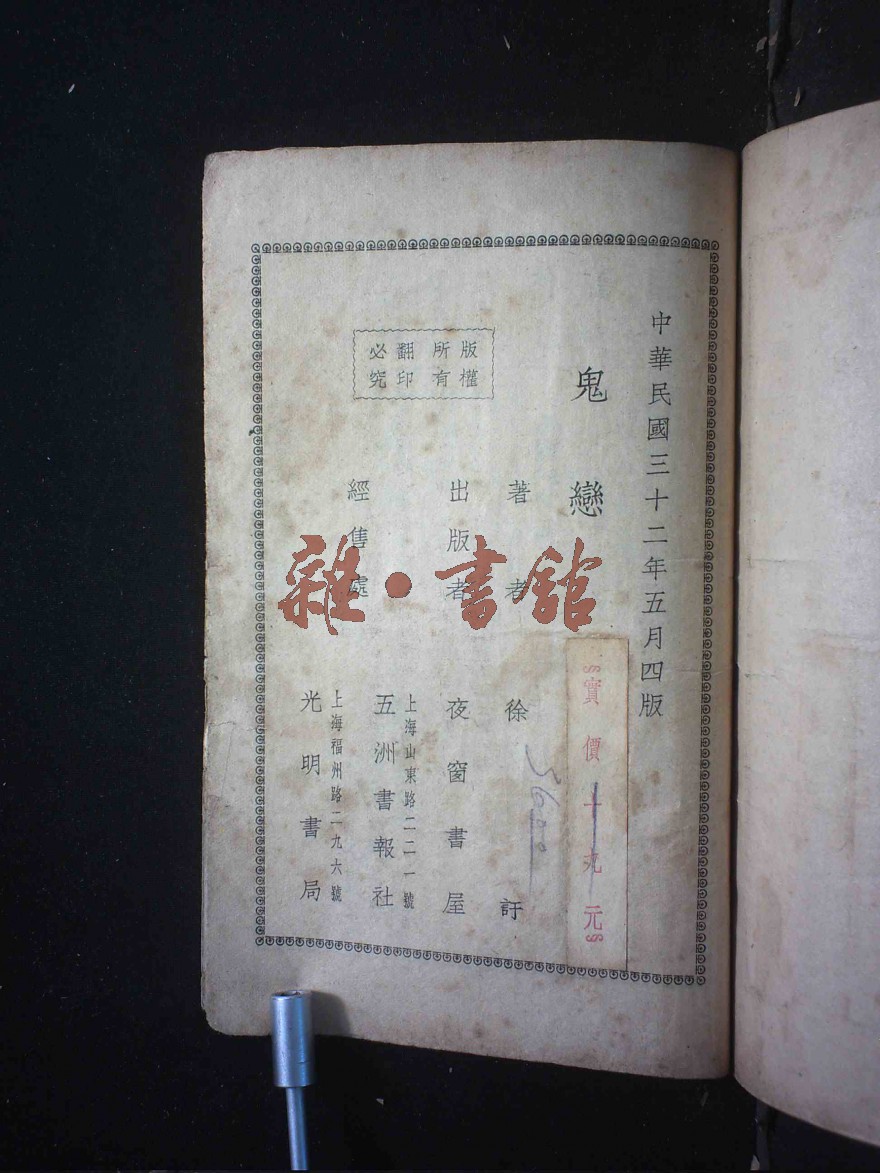 中華民國三十二年五月四版
鬼戀
實價十九元
著者 徐訏
出版者 夜窗書屋
經售處
上海山東路二二一號
五洲書報社
上海福州路二九六號
光明書局
版權所有
翻印必究
雜·書館